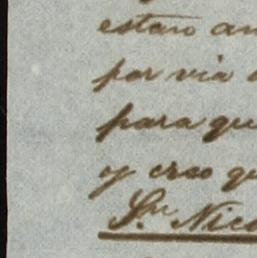 estaro an
por via
para que
y creo qu
Sr. Nico